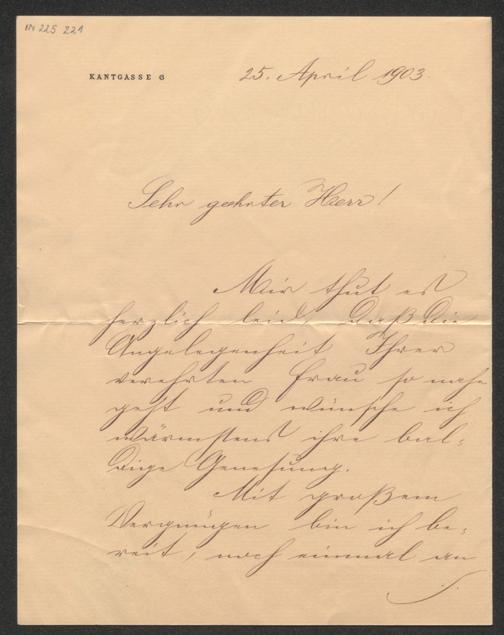 IN 225 221
KANTGASSE 6
25. April 1903.
Sehr geehrter Herr!
Mir thut es
herzlich leid, daß die
Angelegenheit Ihrer
verehrten Frau so nahe
geht und wünsche ich
wärmstens ihre bal-
dige Genesung.
Mit großem
Vergnügen bin ich be-
reit, noch einmal an